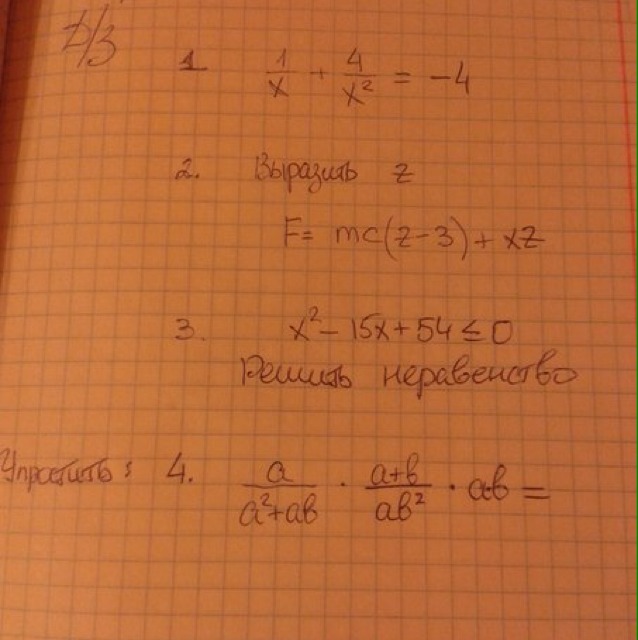 Д/З
1 1/x + 4/x² = -4
2. Выразить z
F = mc(z-3) + xz
3. x² - 15x + 54 ≤ 0
Решить неравенство
Упростить: 4. a/(a²+ab) · (a+b)/(ab²) · ab =